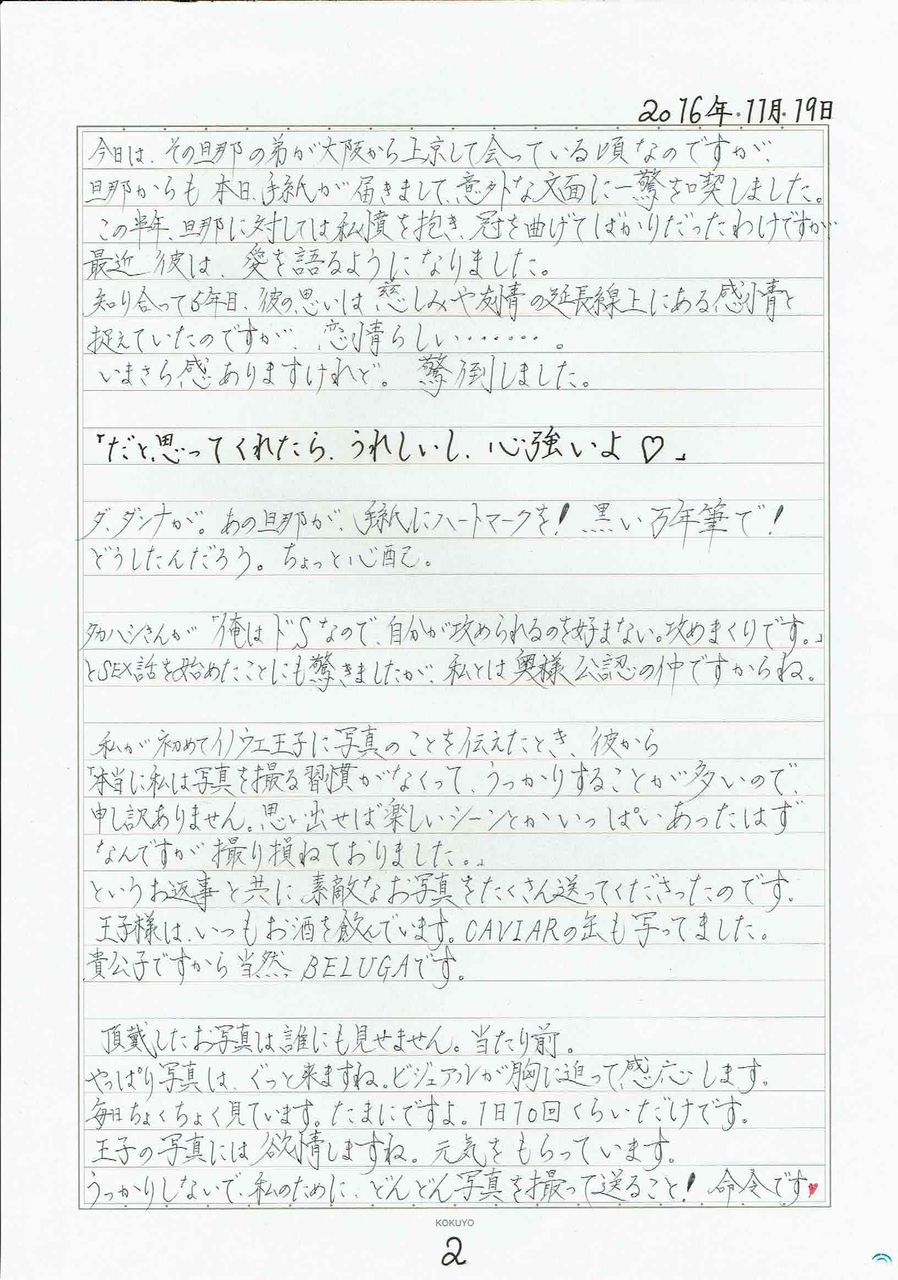 2016年・11月・19日
今日は、その旦那の弟が大阪から上京して会っている頃なのですが、
旦那からも本日、手紙が届きまして、意外な文面に一驚を喫しました。
この半年、旦那に対しては私憤を抱き、冠を曲げてばかりだったわけですが
最近 彼は、愛を語るようになりました。
知り合って6年目、彼の思いは、慈しみや友情の延長線上にある感情と
捉えていたのですが、恋情らしい・・・・・・・。
いまさら感ありますけれど。驚倒しました。
「だと、思ってくれたら、うれしいし、心強いよ♡」
ダ、ダンナが。あの旦那が、手紙にハートマークを！黒い万年筆で！
どうしたんだろう。ちょっと心配。
タカハシさんが「俺はドSなので、自分が攻められるのを好まない。攻めまくりです。」
とSEX話を始めたことにも驚きましたが、私とは奥様公認の仲ですからね。
私が初めてイノウエ王子に写真のことを伝えたとき、彼から
「本当に私は写真を撮る習慣がなくって、うっかりすることが多いので、
申し訳ありません。思い出せば楽しいシーンとかいっぱいあったはず
なんですが撮り損ねておりました。」
というお返事と共に素敵なお写真をたくさん送ってくださったのです。
王子様は、いつもお酒を飲んでいます。CAVIARの缶も写ってました。
貴公子ですから当然、BELUGAです。
頂戴したお写真は誰にも見せません。当たり前。
やっぱり写真は、ぐっと来ますね。ビジュアルが胸に迫って感応します。
毎日ちょくちょく見ています。たまにですよ。1日10回くらいだけです。
王子の写真には欲情しますね。元気をもらっています。
うっかりしないで、私のために、どんどん写真を撮って送ること！命令です♥
KOKUYO
2